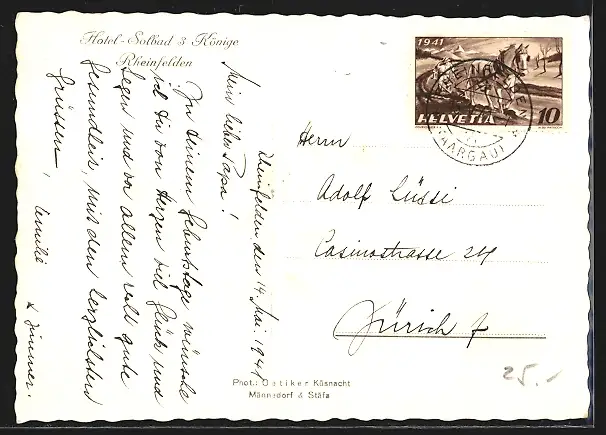 Hotel-Solbad 3 Könige
Rheinfelden
Rheinfelden den 14. Mai. 1941
Mein lieber Papa!
Zu deinem Geburtstage wünsche
ich dir von Herzen viel Glück und
Segen und vor allem recht gute
Gesundheit, mit den herzlichsten
Grüssen,
1941
HELVETIA 10
RHEINFELDEN
(AARGAU)
Herrn
Adolf Lüssi
Casinostrasse 24
Zürich 7
25.-
Phot.: Oetiker Küsnacht
Männedorf & Stäfa